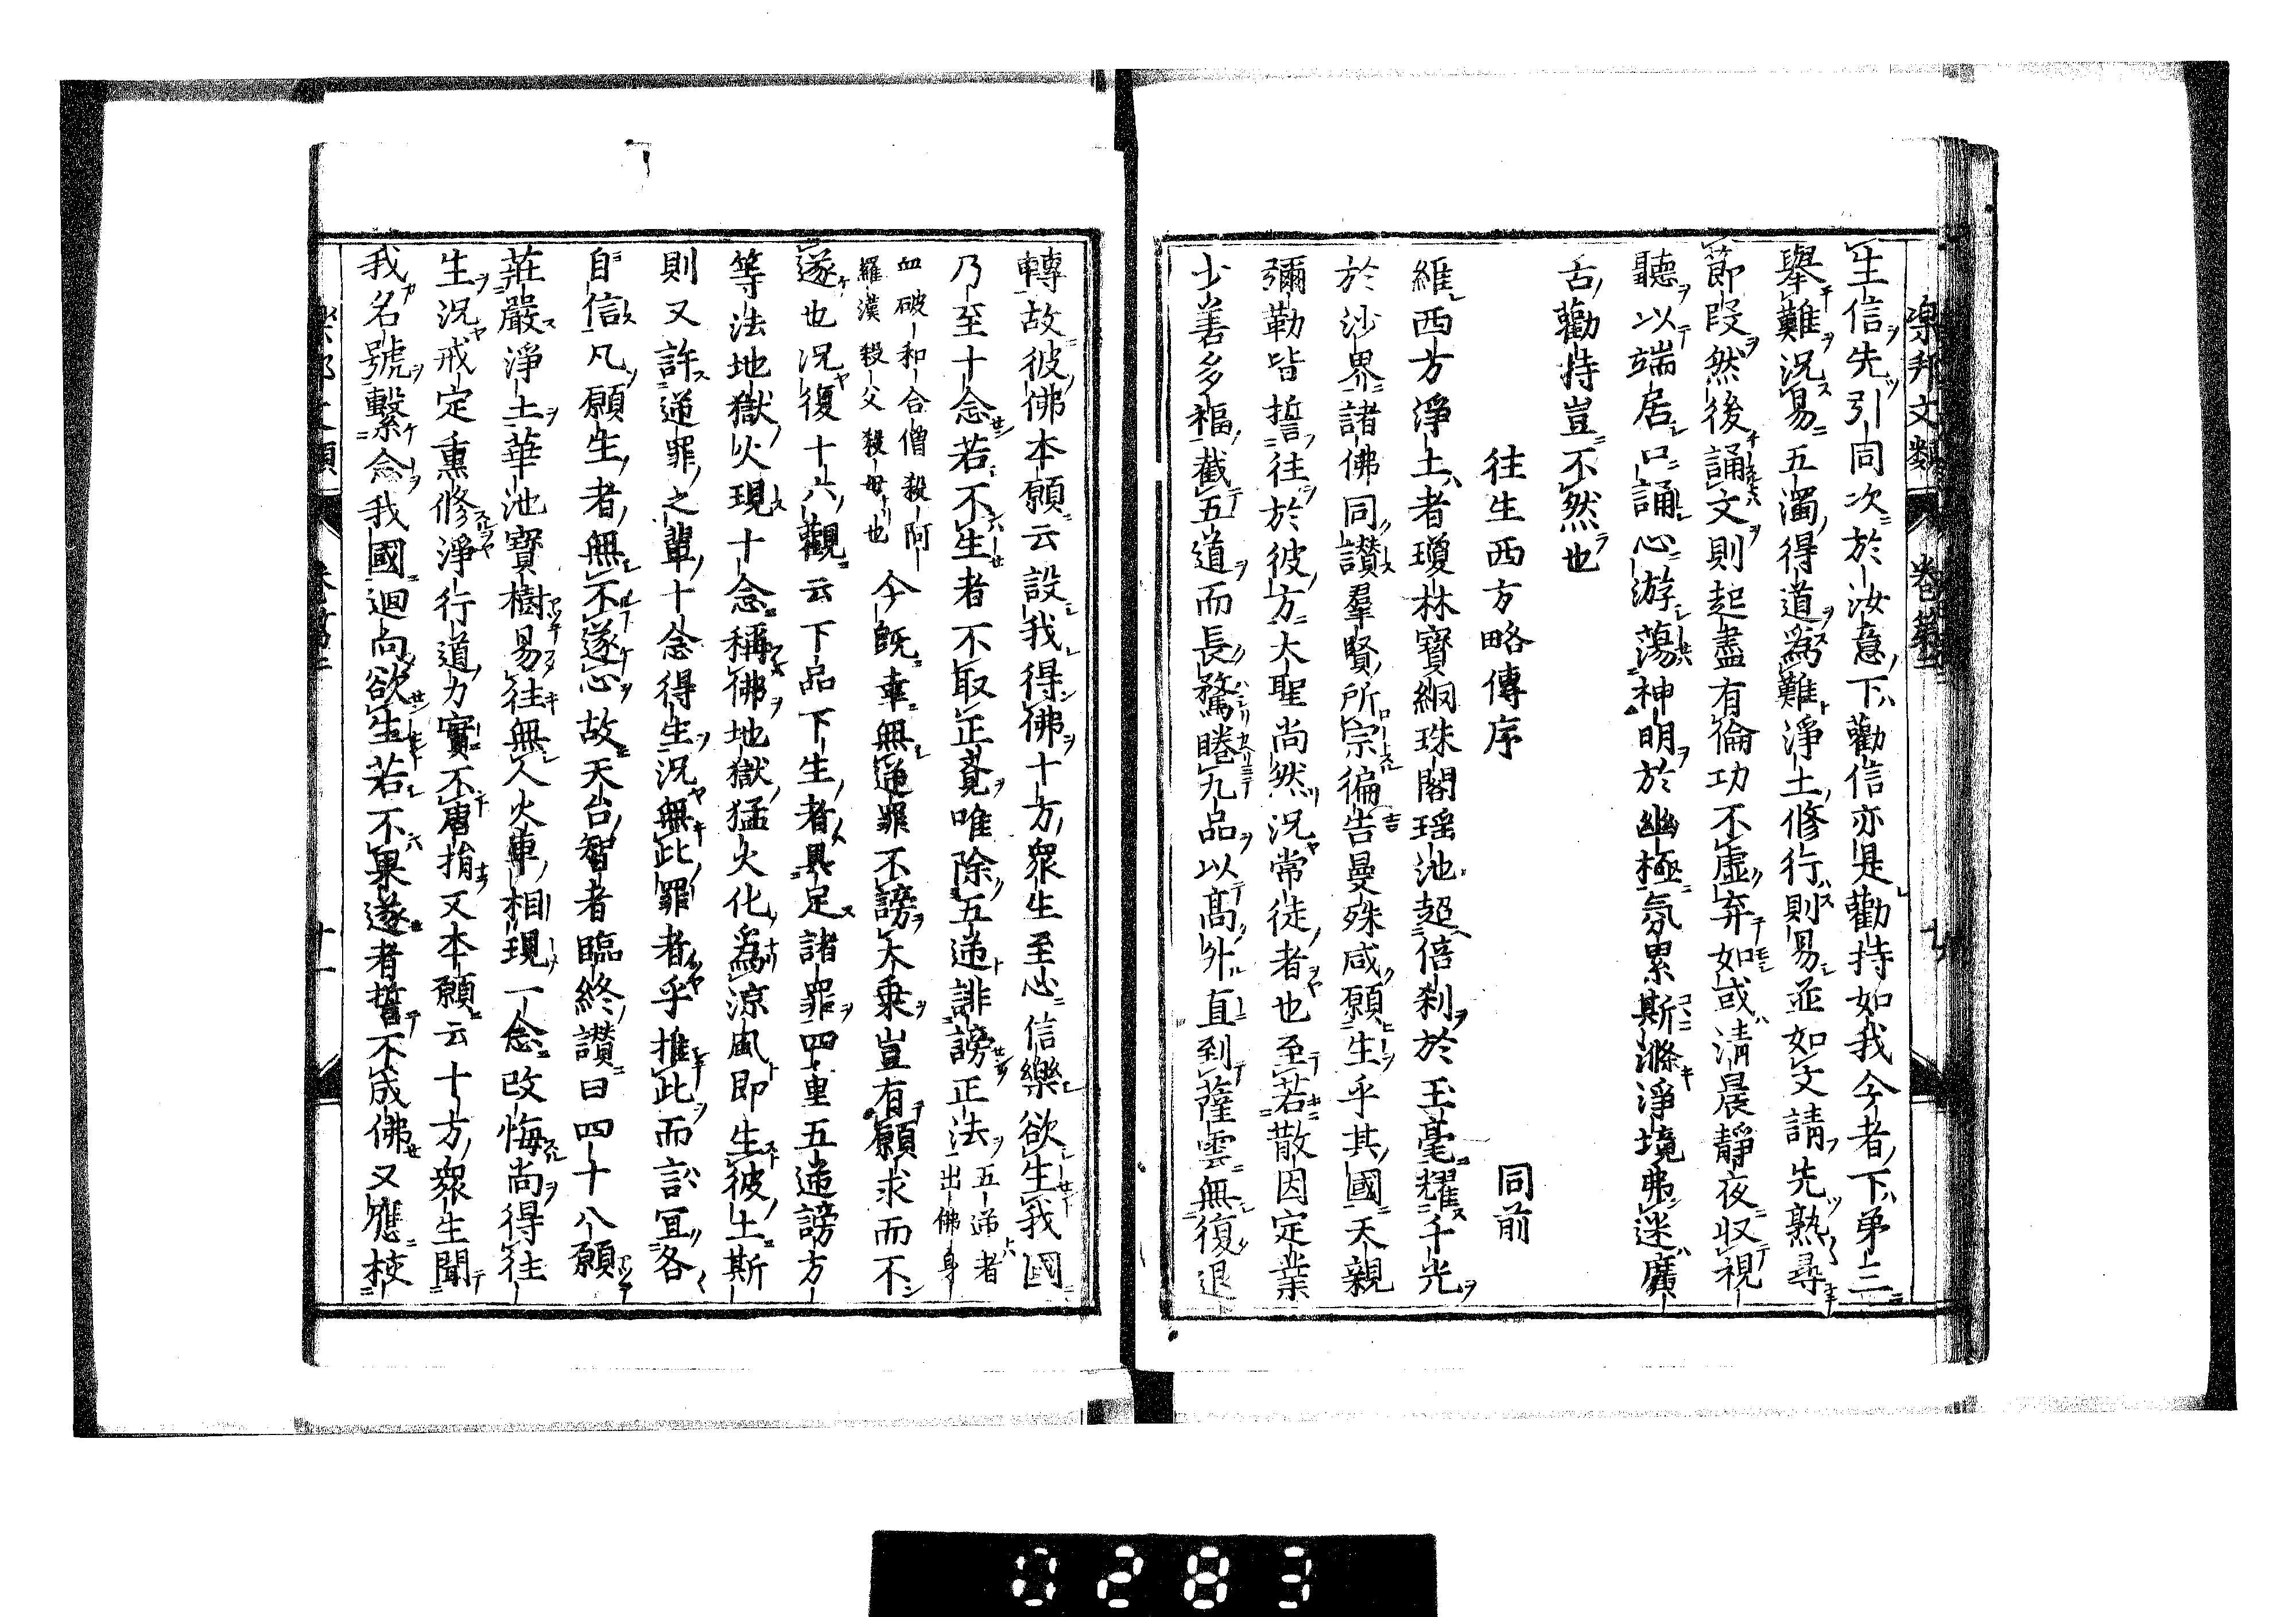 樂邦文類 卷第二
生信先引同次於汝意下勸信亦是勸持如我今者下第三
舉難況易五濁得道爲難淨土修行則易並如文請先熟尋
節段然後誦文則起盡有倫功不虛弃如或清晨靜夜収視
聽以端居口誦心游蕩神明於幽極氛累斯滌淨境弗迷廣
舌勸持豈不然也
往生西方略傳序 同前
維西方淨土者瓊林寶網珠閣瑶池超倍刹於玉毫耀千光
於沙界諸佛同讃羣賢所宗徧告曼殊咸願生乎其國天親
彌勒皆誓往於彼方大聖尚然況常徒者也至若散因定業
少善多福截五道而長騖睠九品以高外直到薩雲無復退
轉故彼佛本願云設我得佛十方衆生至心信樂欲生我國
乃至十念若不生者不取正覺唯除五逆誹謗正法五逆者出佛身
血破和合僧殺阿羅漢殺父殺母也今既幸無逆罪不謗大乗豈有願求而不
遂也況復十六觀云下品下生者具足諸罪四重五逆謗方
等法地獄火現十念稱佛地獄猛火化爲涼風即生彼土斯
則又許逆罪之輩十念得生況無此罪者乎推此而言冝各
自信凡願生者無不遂心故天台智者臨終讃曰四十八願
莊嚴淨土華池寶樹易往無人火車相現一念改悔尚得往
生況戒定熏修淨行道力實不唐捐又本願云十方衆生聞
我名號繫念我國迴向欲生若不果遂者誓不成佛又應校
樂邦文類 卷第二 十一
0283